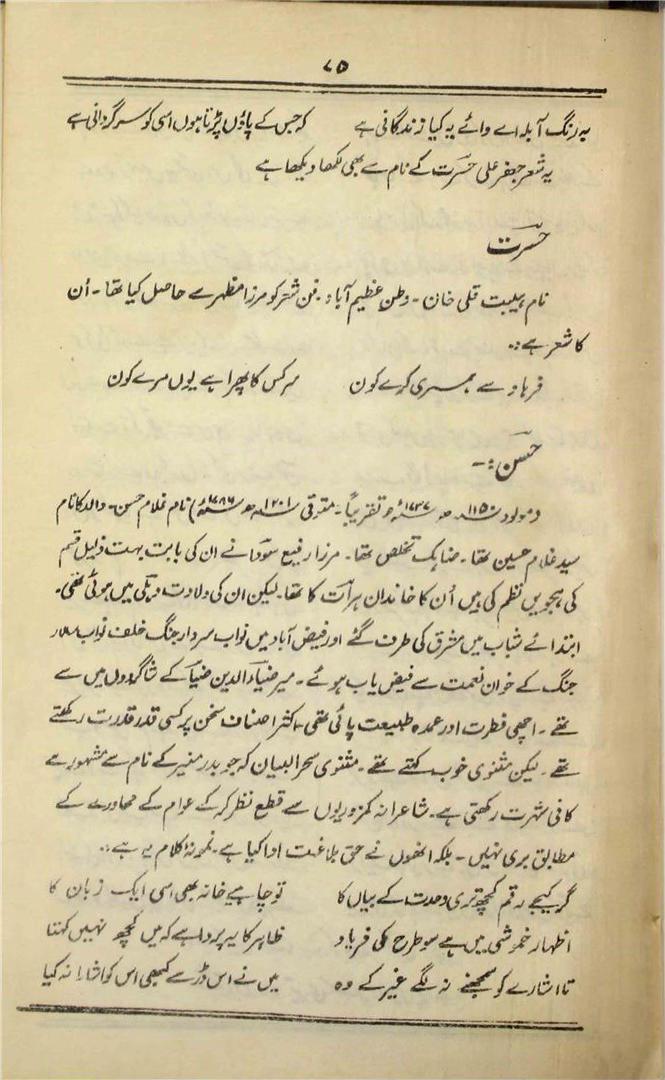 ۷۵
بہ رنگ آبلہ اے وائے یہ کیا زندگانی ہے کہ جس کے پاؤں پڑتا ہوں اسی کو سرگردانی ہے
یہ شعر جعفر علی حسرت کے نام سے بھی لکھا دیکھا ہے
حسرت
نام ہیبت قلی خان۔ وطن عظیم آباد۔ فن شعر کو مرزا مظہر سے حاصل کیا تھا۔ اُن
کا شعر ہے :۔
فرہاد سے ہمسری کرے کون سر کس کا پھرا ہے یوں مرے کون
حسن :۔
(مولود ۱۱۵۰ھ و ۱۷۳۷ء تقریباً۔ متوفی ۱۲۰۱ھ و ۱۷۸۶ء) نام غلام حسن۔ والد کا نام
سید غلام حسین تھا۔ ضاحک تخلص تھا۔ مرزا رفیع سودا نے ان کی بابت بہت ذلیل قسم
کی ہجویں نظم کی ہیں اُن کا خاندان ہرات کا تھا۔ لیکن ان کی ولادت دہلی میں ہوئی تھی۔
ابتدائے شباب میں مشرق کی طرف گئے اور فیض آباد میں نواب سردار جنگ خلف نواب سالار
جنگ کے خوان نعمت سے فیض یاب ہوئے۔ میر ضیاء الدین ضیا کے شاگردوں میں سے
تھے۔ اچھی فطرت اور عمدہ طبیعت پائی تھی۔ اکثر اصناف سخن پر کسی قدر قدرت رکھتے
تھے۔ لیکن مثنوی خوب کہتے تھے۔ مثنوی سحر البیان کہ جو بدر منیر کے نام سے مشہور ہے
کافی شہرت رکھتی ہے۔ شاعرانہ کمزوریوں سے قطع نظر کر کے عوام کے محاورے کے
مطابق بری نہیں۔ بلکہ انھوں نے حق بلاغت ادا کیا ہے۔ نمونہ کلام یہ ہے :۔
گر کیجے رقم کچھ تری وحدت کے بیاں کا تو چاہیے خامہ بھی اسی ایک زبان کا
اظہار خموشی میں ہے سو طرح کی فریاد ظاہر کا یہ پردا ہے کہ میں کچھ نہیں کہتا
تا اشارے کو سمجھنے نہ لگے غیر کے وہ میں نے اس ڈر سے کبھی اس کو اشارا نہ کیا